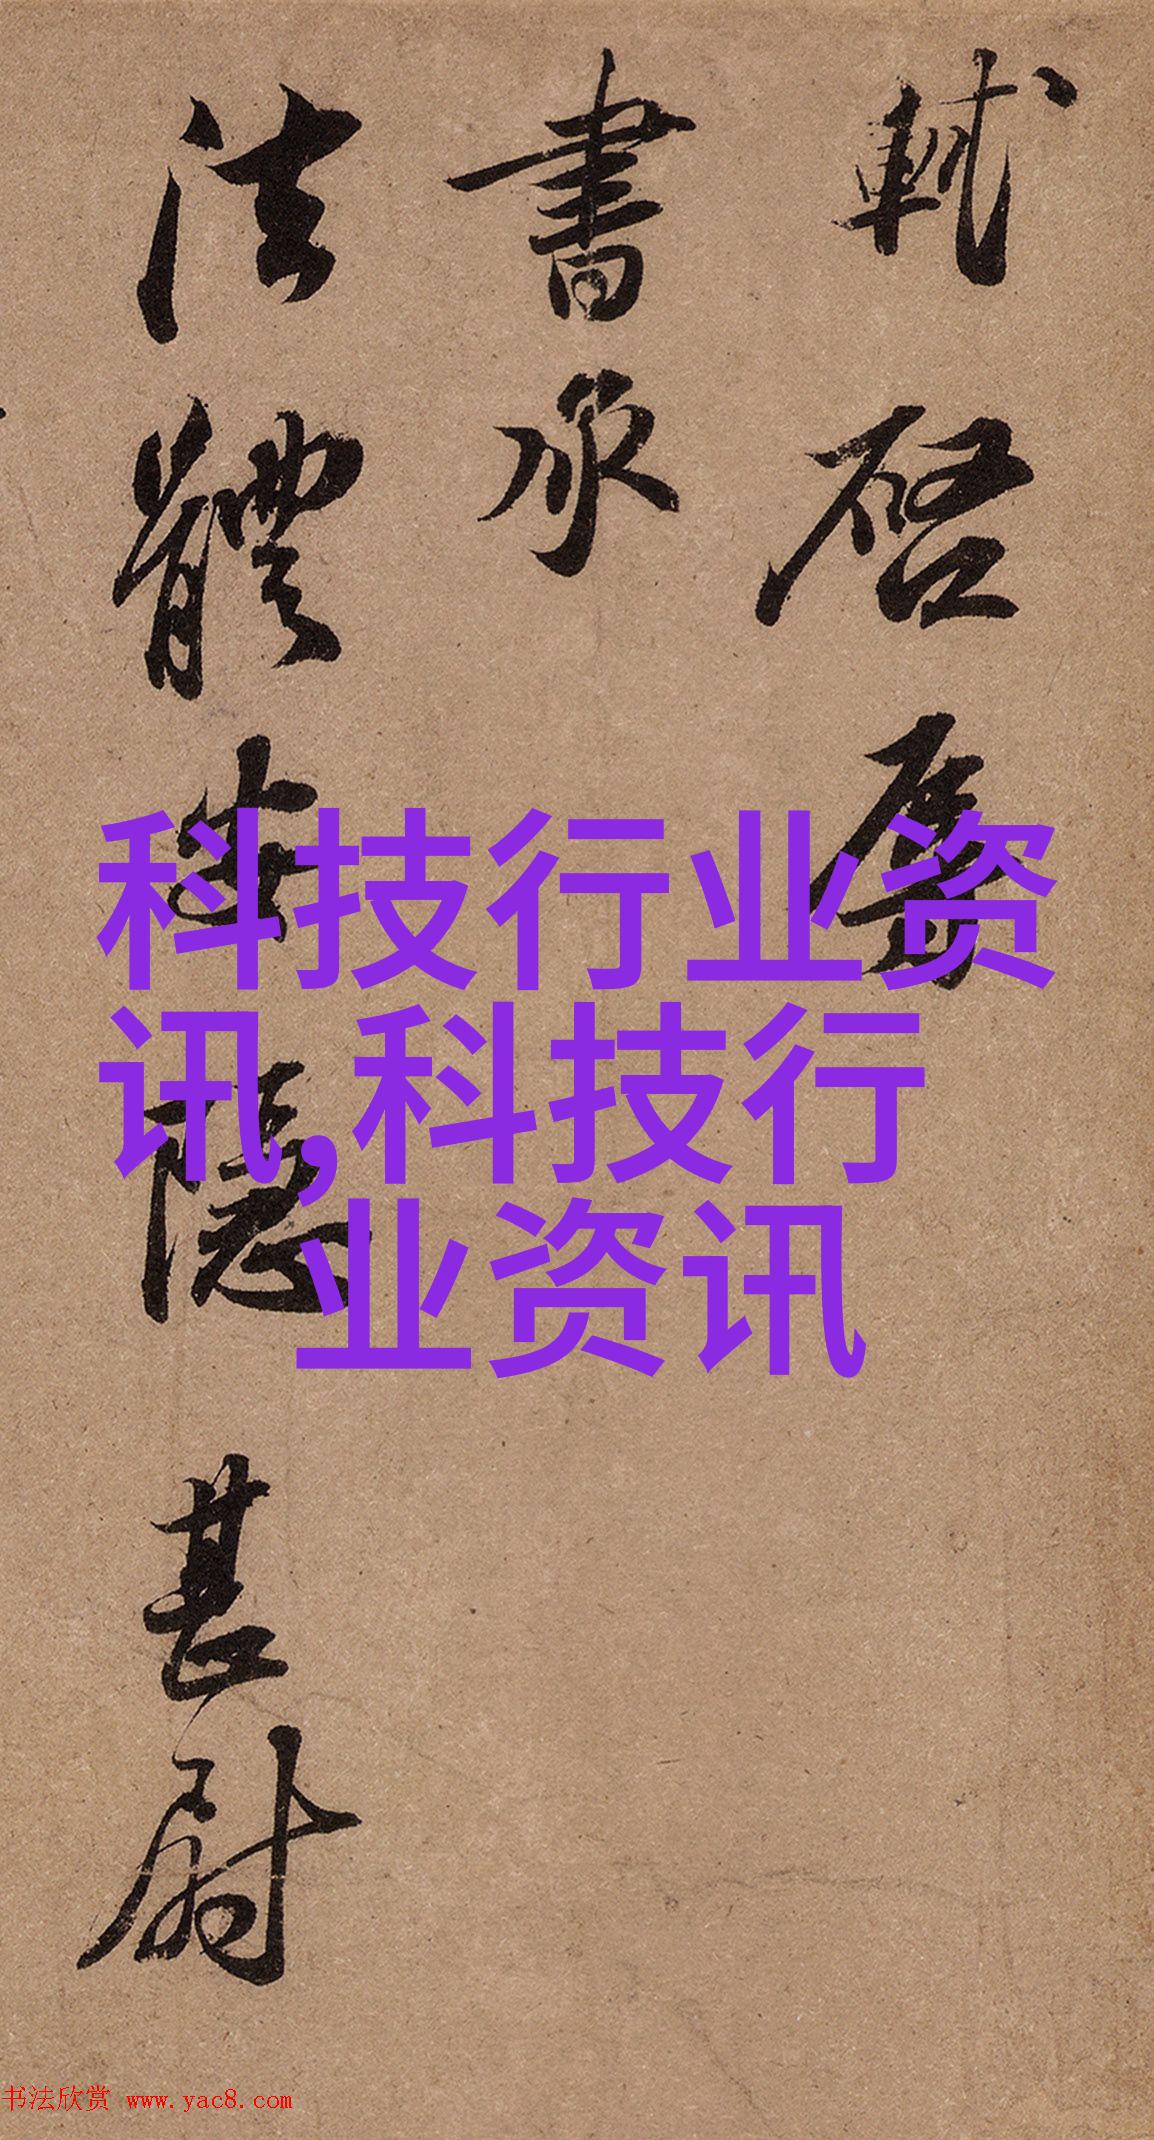 軾啓辱
書承
法體安隱甚尉
科技行业资
讯,科技行
业资讯
书法欣赏 www.yac8.com